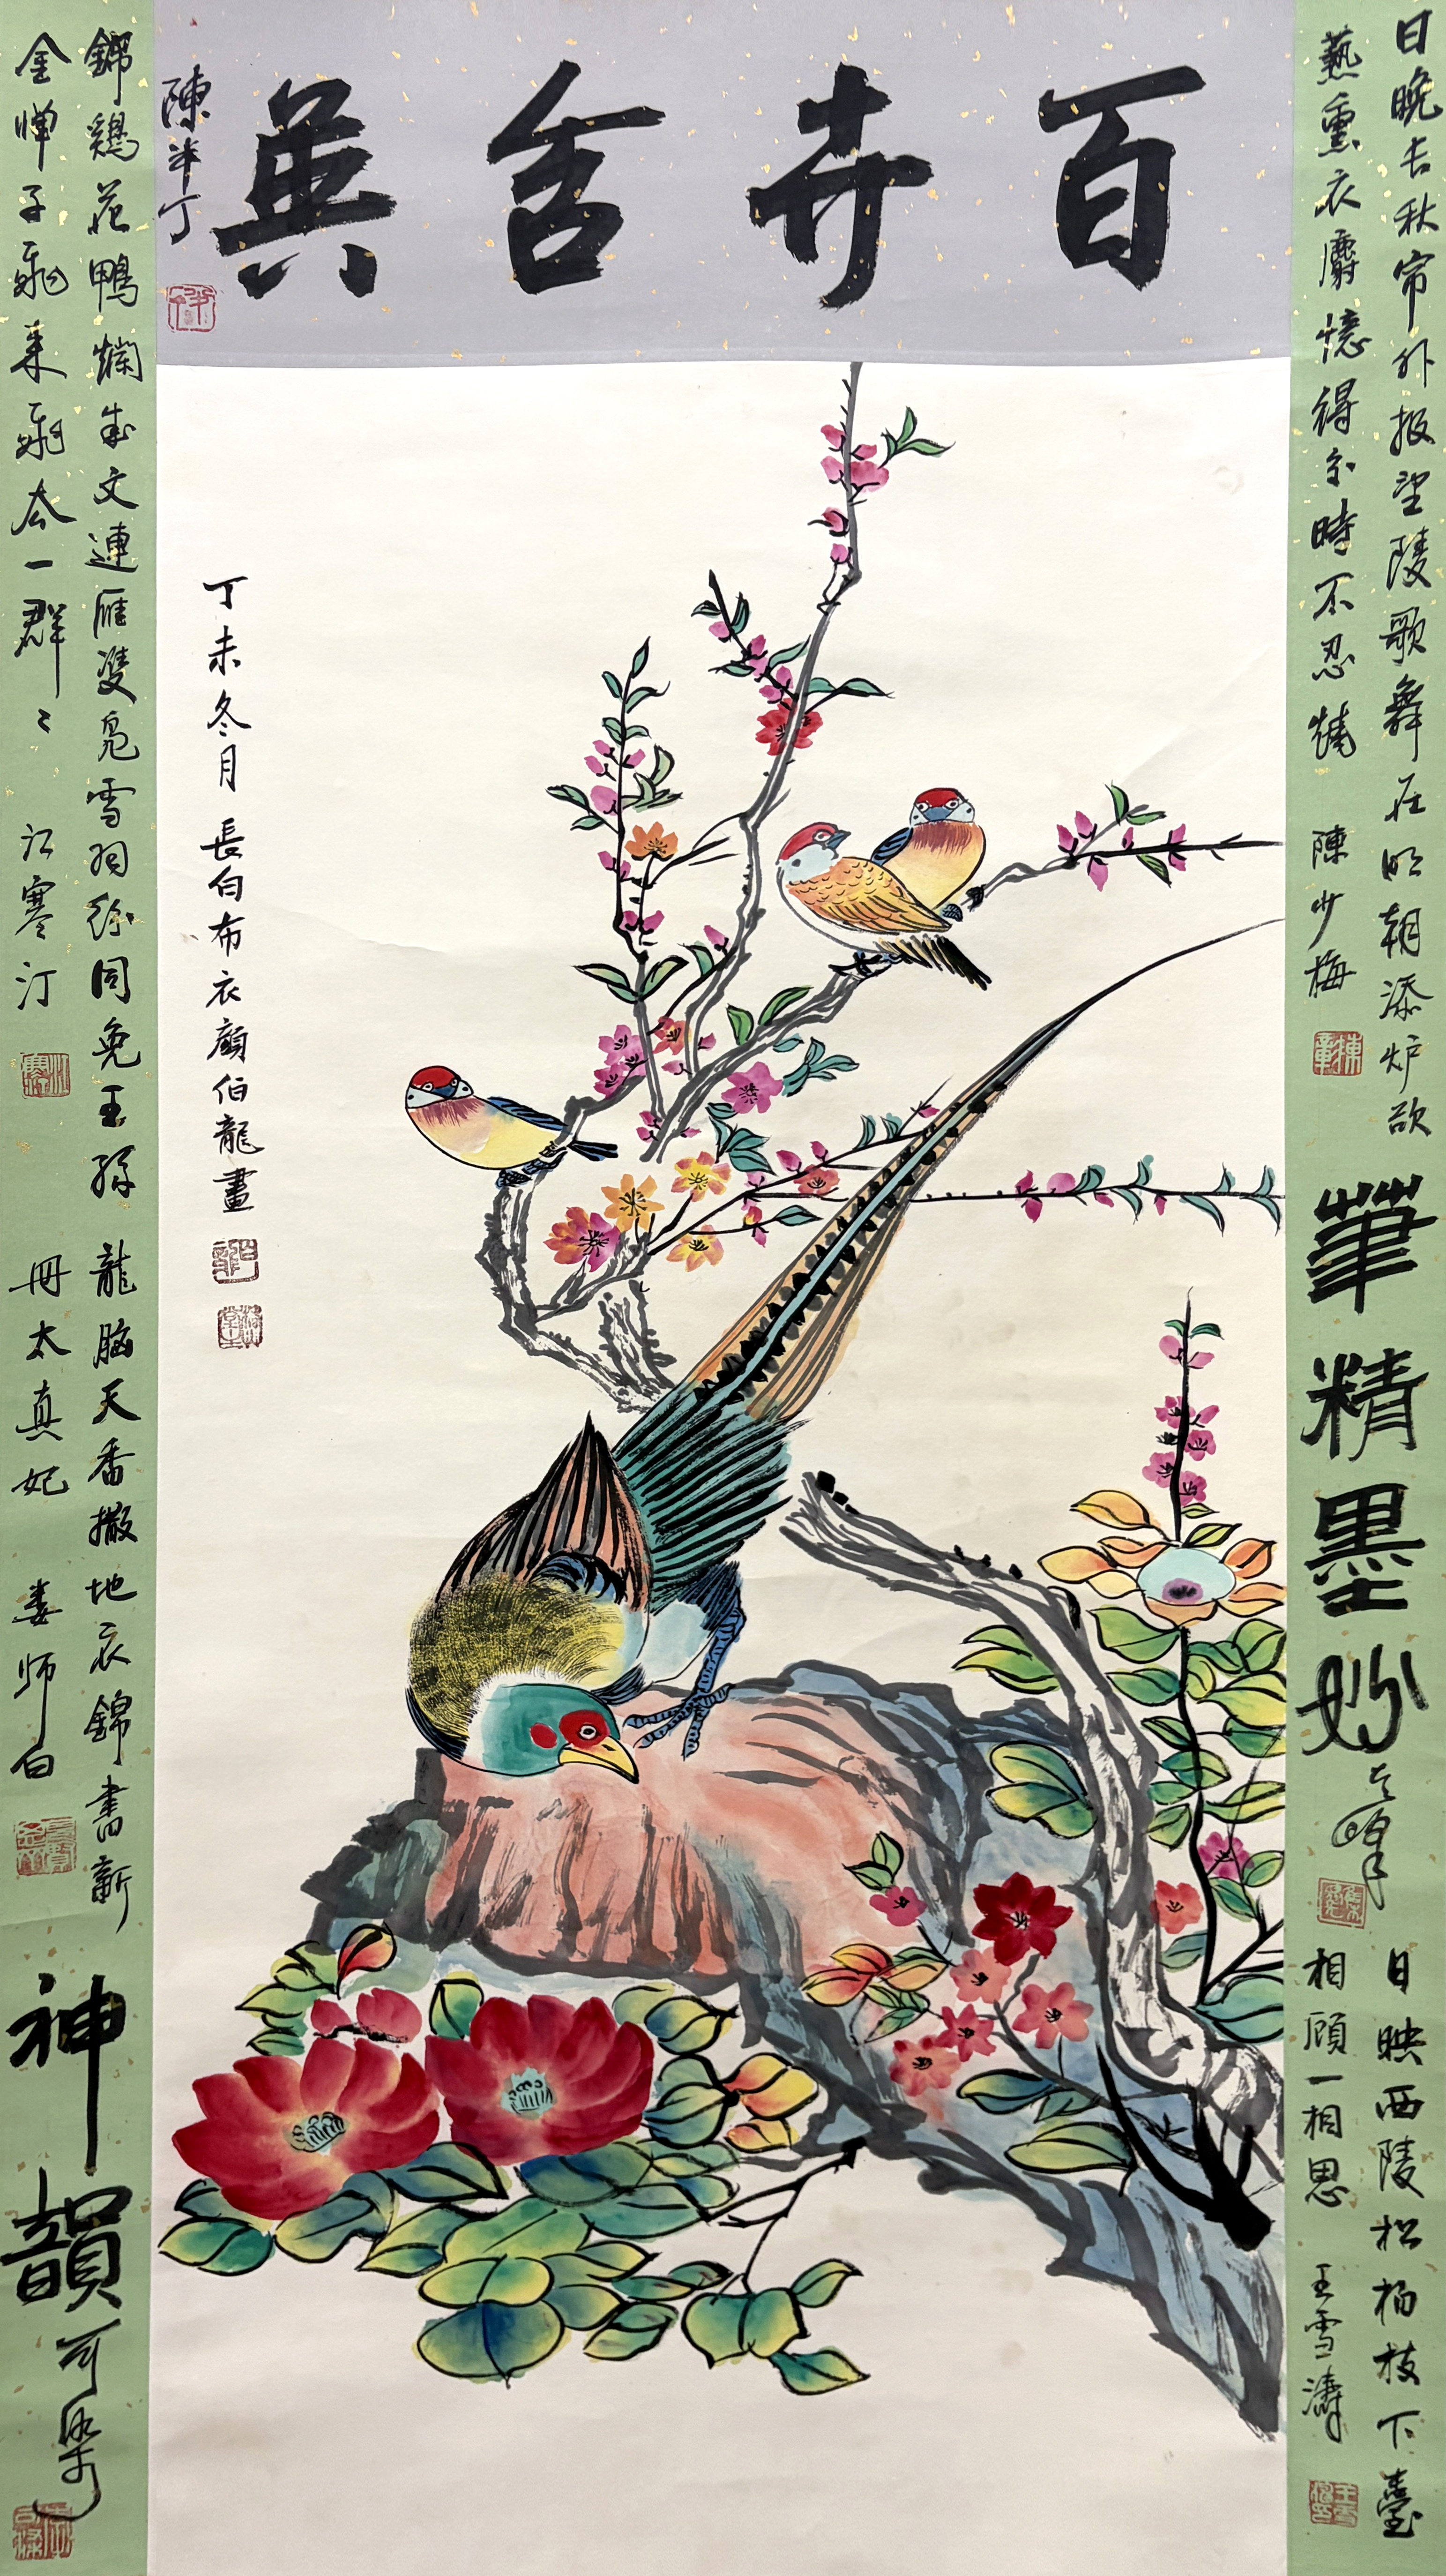 百卉含英
陳半丁
日晚長秋帘外报望陵歌舞在明朝添炉欲
爇熏衣麝憶得分時不忍燒
陳少梅
筆精墨妙
日映西陵松柏枝下臺
相顾一相思
王雪濤
丁未冬月 長白布衣顏伯龍畫
錦鷄花鴨爛成文連雁雙鳧雪羽紛同免王孫
金惮子飛来飛去一群〻
江寒汀
龍脑天香撒地衣錦書新
冊太真妃
娄师白
神韻